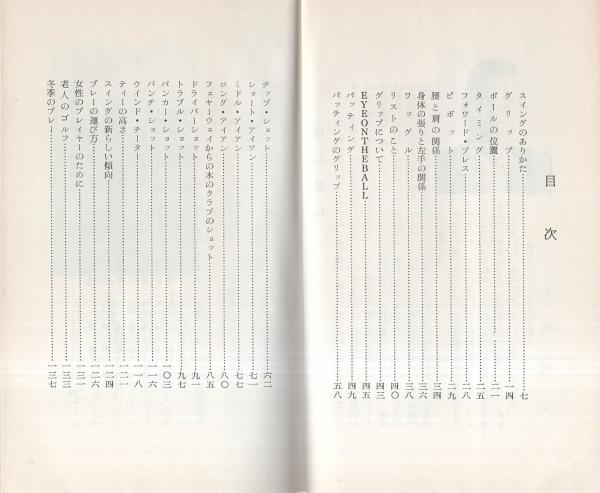 目次
スイングのありかた……七
グリップ……一四
ボールの位置……二一
タイミング……二五
フォワード・プレス……二八
ピボット……二九
腰と肩の関係……三四
身体の張りと左手の関係……三六
ワッグル……三八
リストのこと……四〇
グリップについて……四三
EYE ON THE BALL……四五
パッティング……四九
パッティングのグリップ……五八
チップ・ショット……六二
ショート・アイアン……七一
ミドル・アイアン……七七
ロング・アイアン……八〇
フェヤーウェイからの木のクラブのショット……八五
ドライバーショット……九一
トラブル・ショット……九七
バンカー・ショット……一〇三
パンチ・ショット……一一六
ウインド・チーター……一一八
ティーの高さ……一二一
スイングの新らしい傾向……一二四
プレーの運び方……一二六
女性のプレイヤーのために……一三一
老人のゴルフ……一三三
冬季のプレー……一三七